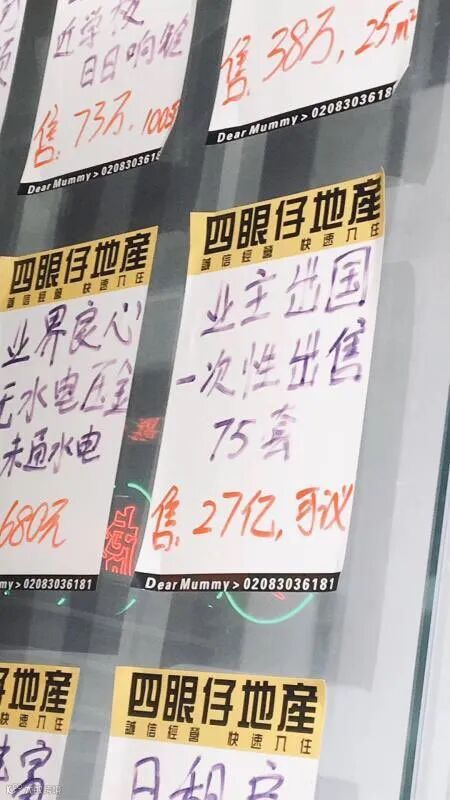 近学校
日日响铃
售:73万,100㎡
Dear Mummy > 0208303618
售:38万,25m²
Dear Mummy > 0208303618
四眼仔地産
誠信經營 快速入住
业界良心
无水电压金
未通水电
680元
my > 02083036181
四眼仔地産
誠信經營 快速入住
业主出国
一次性出售
75套
售:27亿,可议
Dear Mummy > 02083036181
仔地産
快速入住
四眼仔地産
誠信經營 快速入住
日租房